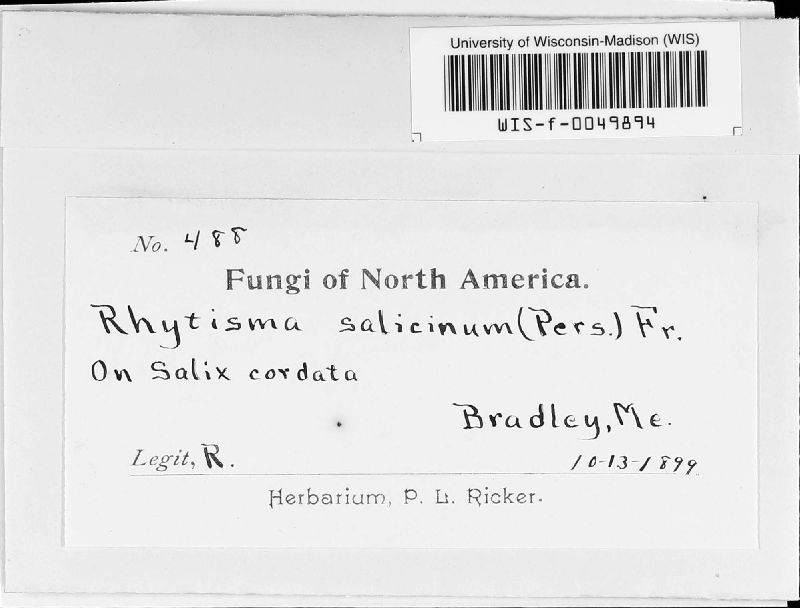 University of Wisconsin-Madison (WIS)
WIS-f-0049894
No. 488
Fungi of North America.
Rhytisma salicinum (Pers.) Fr.
On Salix cordata
Bradley, Me.
Legit, R.
10-13-1899
Herbarium, P. L. Ricker.